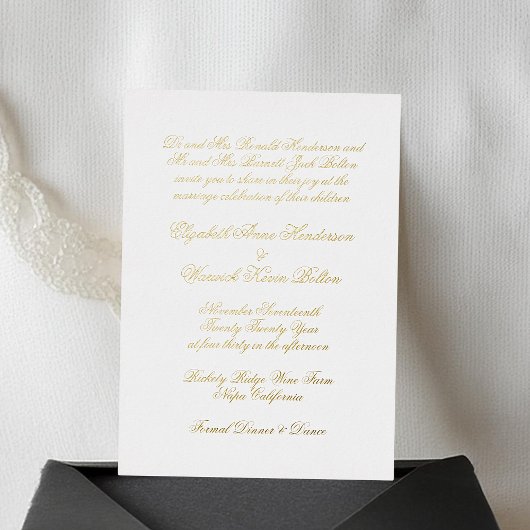 Dr and Mrs Ronald Henderson and
Mr and Mrs Barnett Jack Bolton
invite you to share in their joy at the
marriage celebration of their children
Elizabeth Anne Henderson
&
Warwick Kevin Bolton
November Seventeenth
Twenty Twenty Year
at four thirty in the afternoon
Rickety Ridge Wine Farm
Napa California
Formal Dinner & Dance